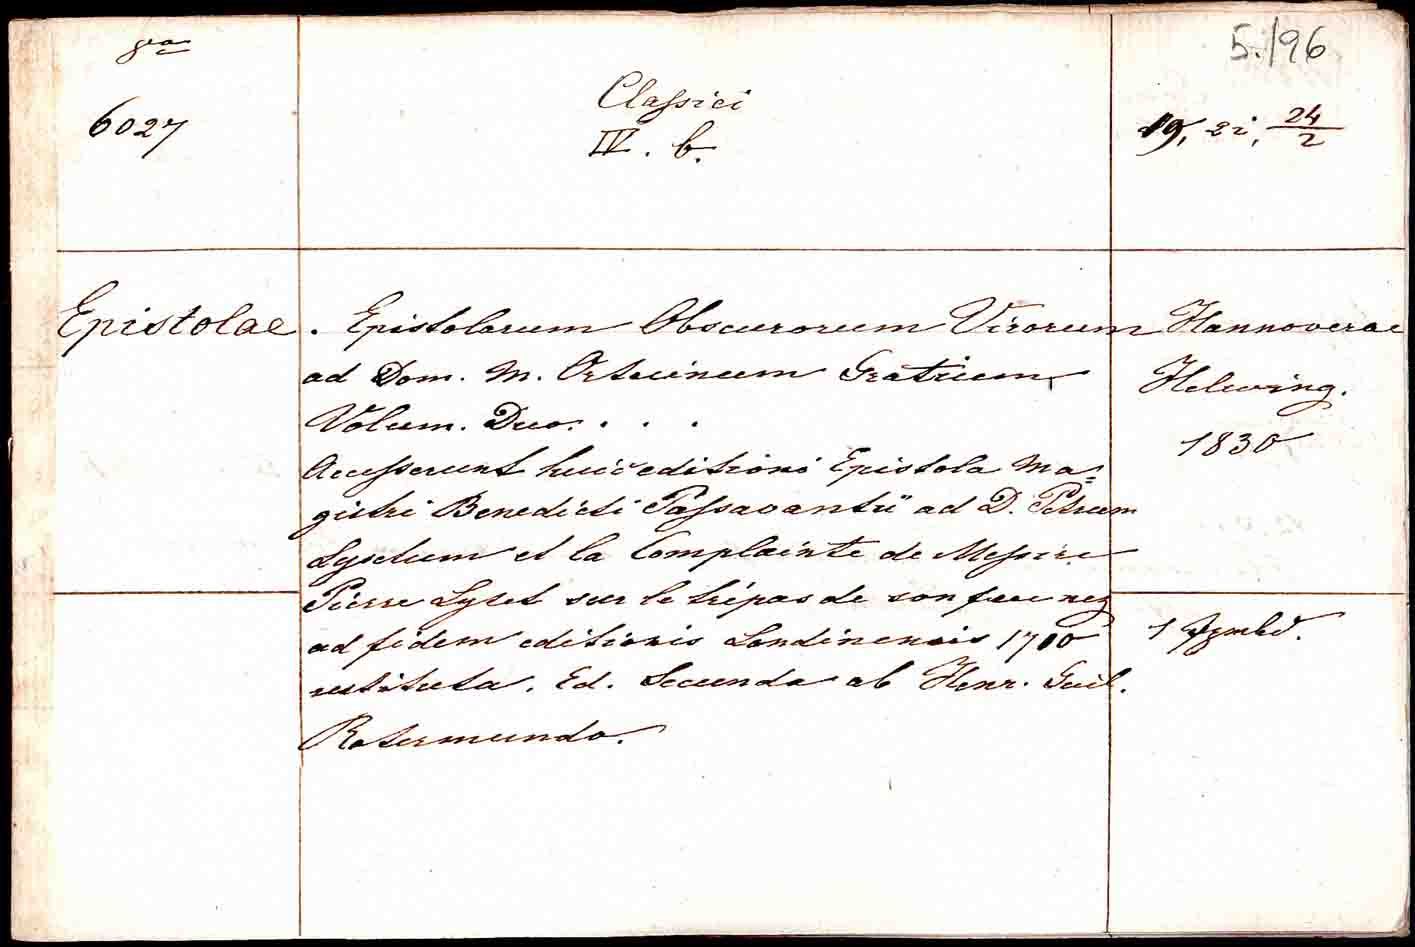 8vo
6027
Classici
IV. b.
5./96
19, 2i, 24/2
Epistolae.
Epistolarum Obscurorum Virorum
ad Dom. M. Ortuinum Gratium
Volum. Duo. . . .
Accesserunt huic editioni Epistola Ma=
gistri Benedicti Passavantii ad D. Petrum
Lysetum et la Complainte de Messire
Pierre Lyset sur le trépas de son feu nez
ad fidem editionis Londinensis 1710
restituta. Ed. Secunda ab Henr. Guil.
Rotermundo.
Hannoverae
Helwing.
1830
1